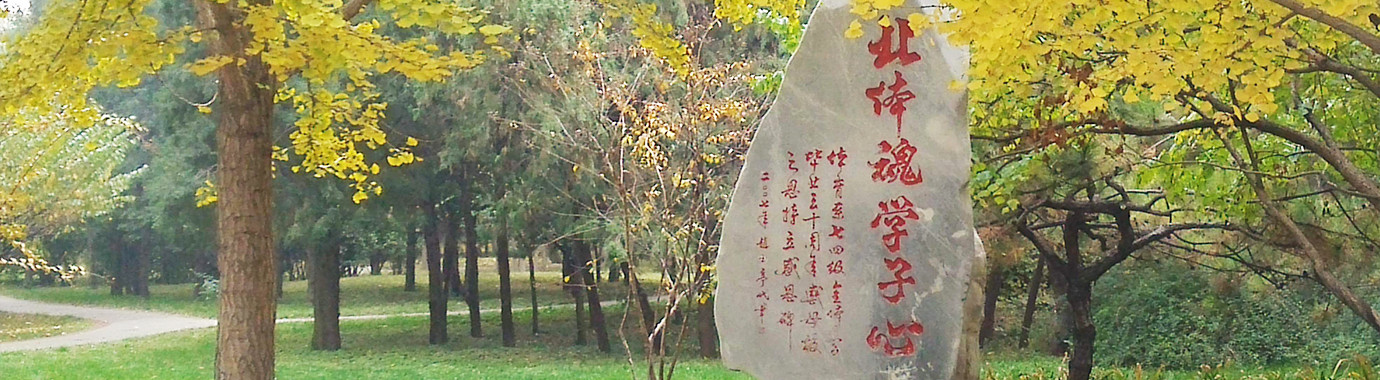 北体魂学子心
体育系七四级全体学子
毕业三十周年感母校
之恩特立感恩碑
二〇〇七年